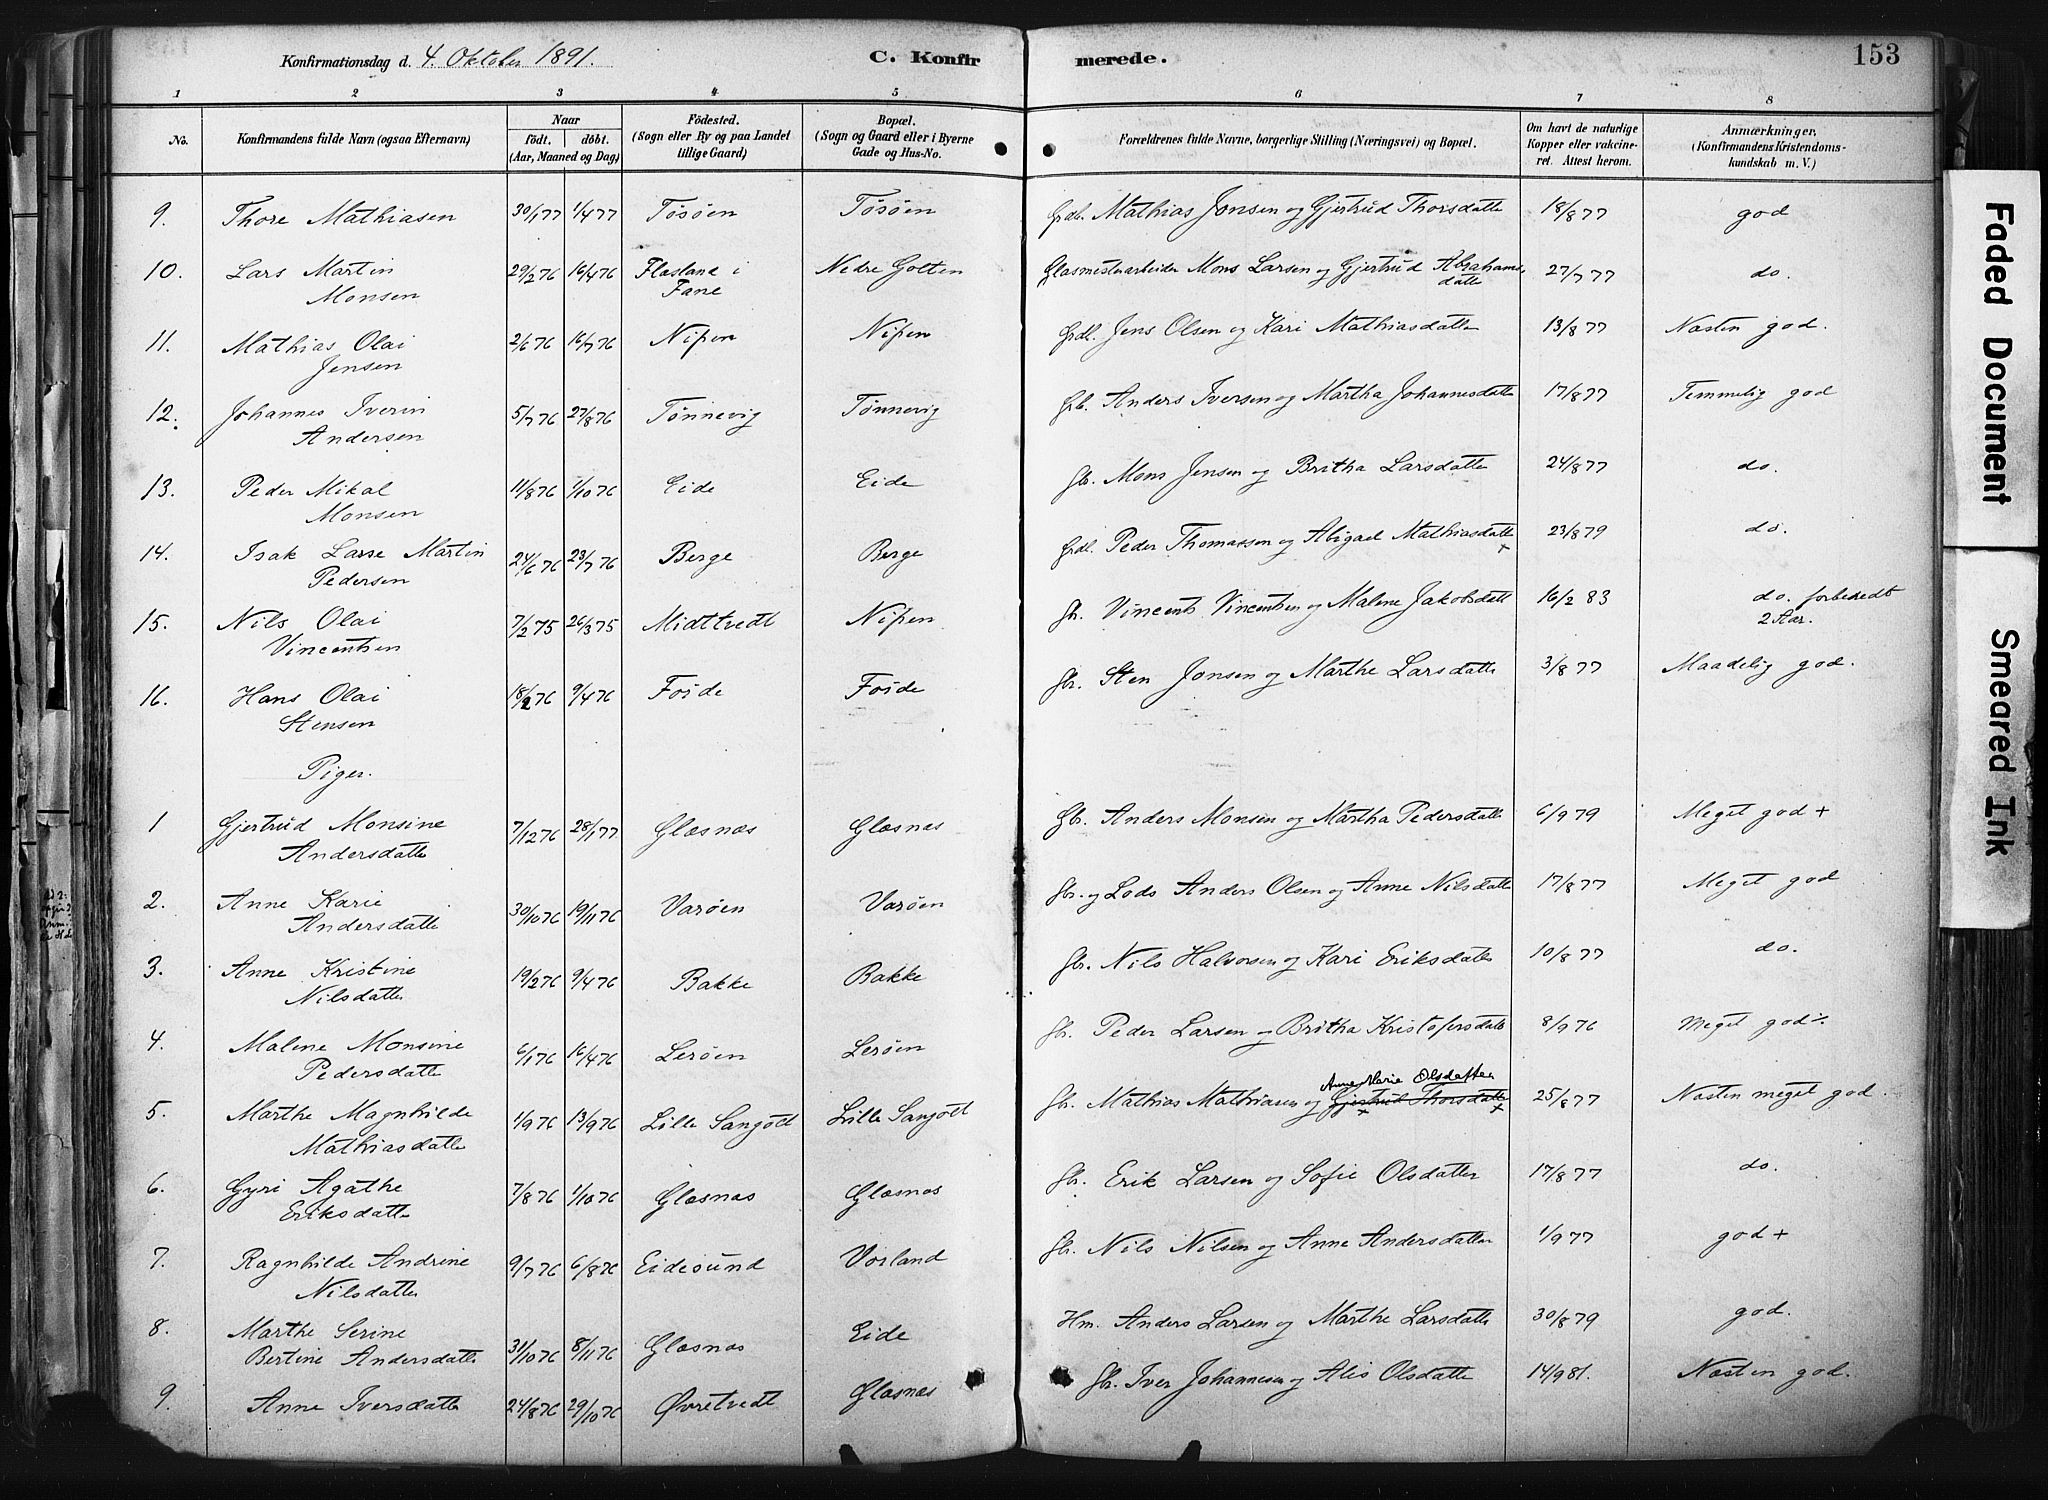 Konfirmationsdag d. 4. Oktober 1891. C. Konfirmerede. 153
1 2 3 4 5 6 7 8
No. Konfirmandens fulde Navn (ogsaa Efternavn) Naar födt. döbt. (Aar, Maaned og Dag) Födested. (Sogn eller By og paa Landet tillige Gaard) Bopæl. (Sogn og Gaard eller i Byerne Gade og Hus-No. Forældrenes fulde Navne, borgerlige Stilling (Næringsvei) og Bopæl. Om havt de naturlige Kopper eller vakcineret. Attest herom. Anmærkninger. (Konfirmandens Kristendomskundskab m. V.)
9. Thore Mathiasen 30/1 77 1/4 77 Tösöen Tösöen Grdl. Mathias Jonsen og Gjertrud Thorsdatter 18/8 77 god
10. Lars Martin Monsen 29/2 76 16/4 76 Flæsland i Fane Nedre Golten Glasmesterarbeider Mons Larsen og Gjertrud Abrahamsdatter 27/7 77 do.
11. Mathias Olai Jensen 2/6 76 16/7 76 Nipen Nipen Grdl. Jens Olsen og Kari Mathiasdatter 13/8 77 Næsten god.
12. Johannes Iverin Andersen 5/7 76 27/8 76 Tønnevig Tønnevig Grb. Anders Iversen og Martha Johannesdatter 17/8 77 Temmelig god
13. Peder Mikal Monsen 11/8 76 1/10 76 Eide Eide Gb. Mons Jensen og Britha Larsdatter 24/8 77 do.
14. Isak Lasse Martin Pedersen 24/6 76 23/7 76 Berge Berge Grdl. Peder Thomassen og Abigael Mathiasdatter + 23/8 79 do.
15. Nils Olai Vincentsen 7/2 75 26/3 75 Midttvedt Nipen Gb. Vincents Vincentsen og Malene Jakobsdatt 16/2 83 do. forberedt 2 Aar.
16. Hans Olai Stensen 18/2 76 9/4 76 Foside Foside Gb. Sten Jonsen og Marthe Larsdatter 3/8 77 Maadelig god.
Piger.
1 Gjertrud Monsine Andersdatter 7/12 76 28/1 77 Glæsnæs Glæsnæs Gb. Anders Monsen og Martha Pedersdatter 6/9 79 Meget god +
2. Anne Karie Andersdatter 30/10 76 19/11 76 Varöen Varöen Gbr. og Lods Anders Olsen og Anne Nilsdatter 17/8 77 Meget god
3. Anne Kristine Nilsdatter 19/2 76 9/4 76 Bakke Bakke Gb. Nils Halvorsen og Kari Eriksdatter 10/8 77 do.
4. Malene Monsine Pedersdatter 6/1 76 16/4 76 Leröen Leröen Gb. Peder Larsen og Britha Kristofersdatter 8/9 76 Meget god
5. Marthe Magnhilde Mathiasdatter 1/9 76 13/9 76 Lille Sangolt Lille Sangolt Gb. Mathias Mathiasen og Gjertrud Thorsdatter Anne Marie Olsdatter 25/8 77 Næsten meget god.
6. Gyri Agathe Eriksdatter 7/8 76 1/10 76 Glæsnæs Glæsnæs Gb. Erik Larsen og Sofie Olsdatter 17/8 77 do.
7. Ragnhilde Andrine Nilsdatter 9/7 76 6/8 76 Eidesund Vorland Gb. Nils Nilsen og Anne Andersdatter 1/9 77 god +
8. Marthe Serine Bertine Andersdatter 31/10 76 8/11 76 Glæsnæs Eide Hm. Anders Larsen og Marthe Larsdatter 30/8 79 god.
9. Anne Iversdatter 24/8 76 29/10 76 Øvretvedt Glæsnæs Gb. Iver Johannesen og Alis Olsdatter 14/9 81. Næsten god.
Faded Document
Smeared Ink